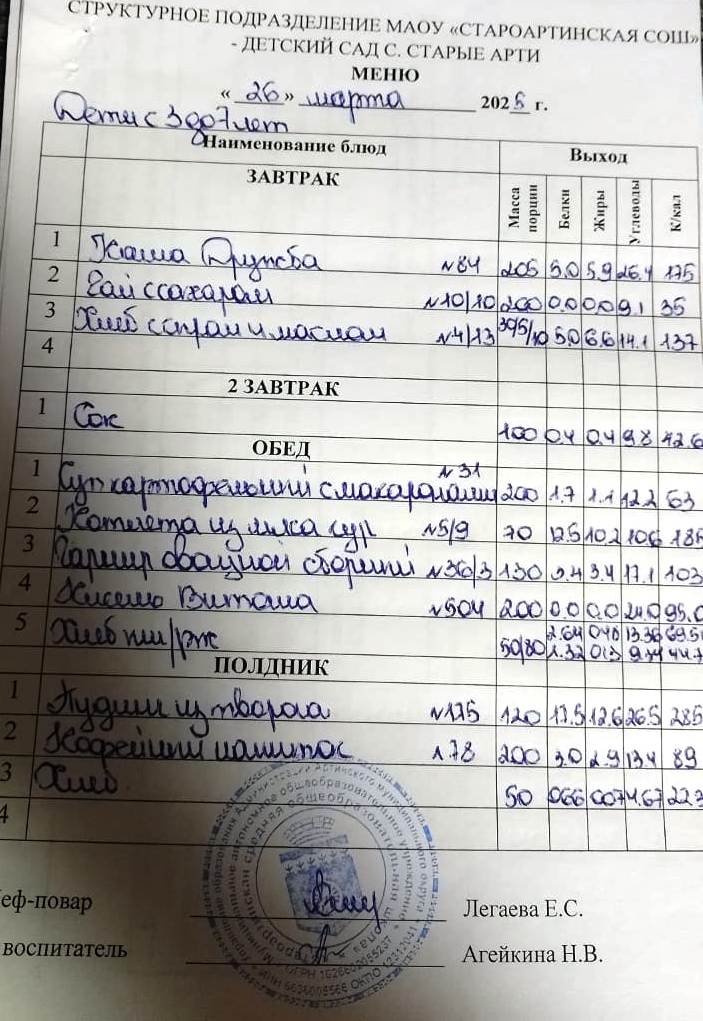 СТРУКТУРНОЕ ПОДРАЗДЕЛЕНИЕ МАОУ «СТАРОАРТИНСКАЯ СОШ»
- ДЕТСКИЙ САД С. СТАРЫЕ АРТИ
МЕНЮ
« 26 » марта 2025 г.
Дети с 3 до 7 лет
Наименование блюд Выход
ЗАВТРАК Масса порции Белки Жиры Углеводы К/кал
1 Каша Дружба №84 205 5.0 5.9 26.4 175
2 Чай с сахаром №10/10 200 0.0 0.0 9.1 35
3 Хлеб с сыром и маслом №4/13 30/5/10 5.0 6.6 14.1 137
4
2 ЗАВТРАК
1 Сок 100 0.4 0.4 9.8 42.6
ОБЕД
1 Суп картофельный с макаронами №31 200 1.7 1.1 12.2 63
2 Котлета из мяса кур №5/9 70 12.5 10.2 10.6 185
3 Гарнир овощной сборный №36/3 130 3.4 17.1 103
4 Кисель Виташа №504 200 0.0 0.0 24.0 95.0
5 Хлеб пш/рж 50/80 2.64 0.48 13.36 69.5
1.32 44.7
ПОЛДНИК
1 Пудинг из творога №175 120 17.5 12.6 26.5 285
2 Кофейный напиток 178 200 3.0 2.9 13.4 89
3 Хлеб 50 066 22.3
4
еф-повар Легаева Е.С.
воспитатель Агейкина Н.В.